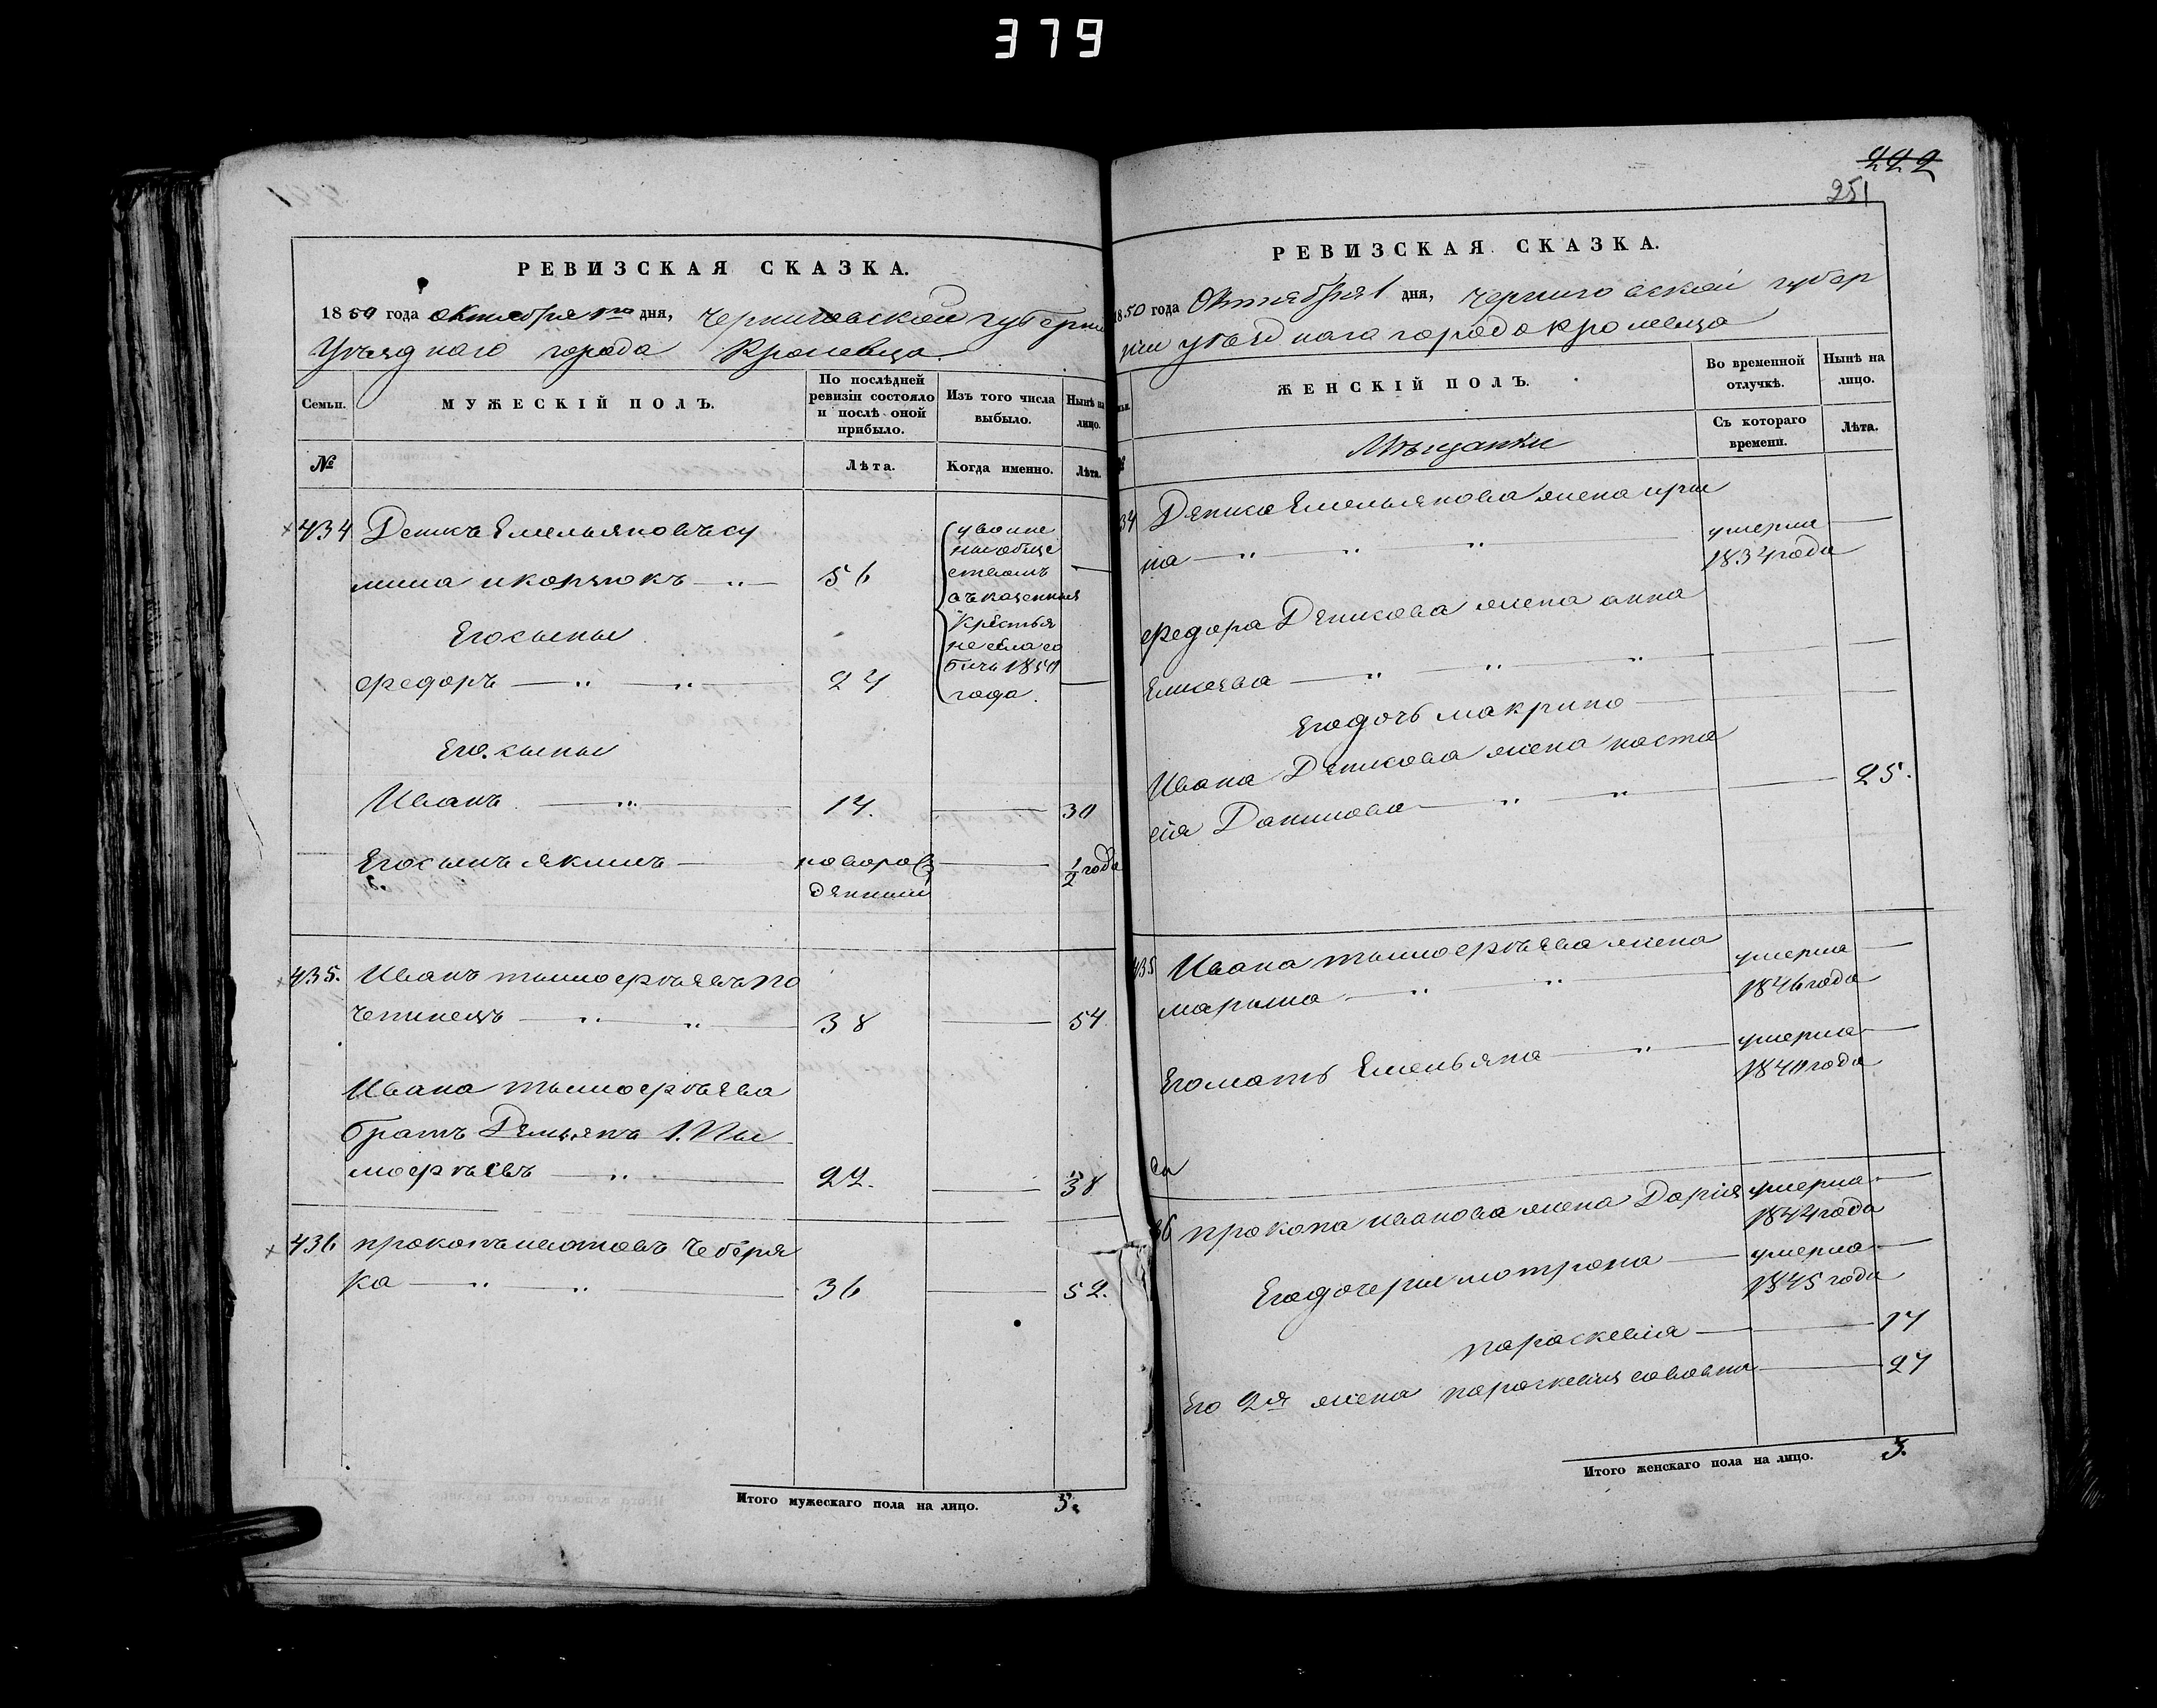 379
РЕВИЗСКАЯ СКАЗКА.
1850 года октября 1го дня, Черниговской губерни
Уѣзднаго города Кролевца
Семьи.
МУЖЕСКІЙ ПОЛЪ.
По послѣдней ревизіи состояло и послѣ оной прибыло.
Изъ того числа выбыло.
Нынѣ на лицо.
№
Лѣта.
Когда именно.
Лѣта.
434 Емельяновъ
56
уволне
ны обще
ствомъ
въ казенныя
крестья
не села
1850
года.
Его сыны
Федоръ 24
Его сыны
Иванъ 14. 30
Его сынъ Якимъ новорож 1/2 года
денный
435. Иванъ Тимофѣевъ По
38 54
Ивана Тимофѣева
братъ Демьянъ Ти
мофѣевъ 22. 38
436 Прокопъ Ивановъ Чебіря
ка 36 52.
Итого мужескаго пола на лицо. 5.
222
251
РЕВИЗСКАЯ СКАЗКА.
1850 года Октября 1 дня, Черниговской губер
ніи уѣзднаго города Кролевца
ЖЕНСКІЙ ПОЛЪ.
Во временной отлучкѣ.
Нынѣ на лицо.
Мѣщанки
Съ котораго времени.
Лѣта.
34 Емельянова жена Ири
на умерла
1834 года
Федора жена Анна
Его дочь Макрина
Ивана жена Наста
сія Данилова 25.
435 Ивана Тимофѣева жена умерла
Марина 1846 года
Его мать Емельяна умерла
1840 года
36 Прокопа Иванова жена Дарія умерла
1844 года
Его дочери Мотрона умерла
1845 года
Параскевия 17
Его 2я жена Параскевия 27
Итого женскаго пола на лицо. 3.